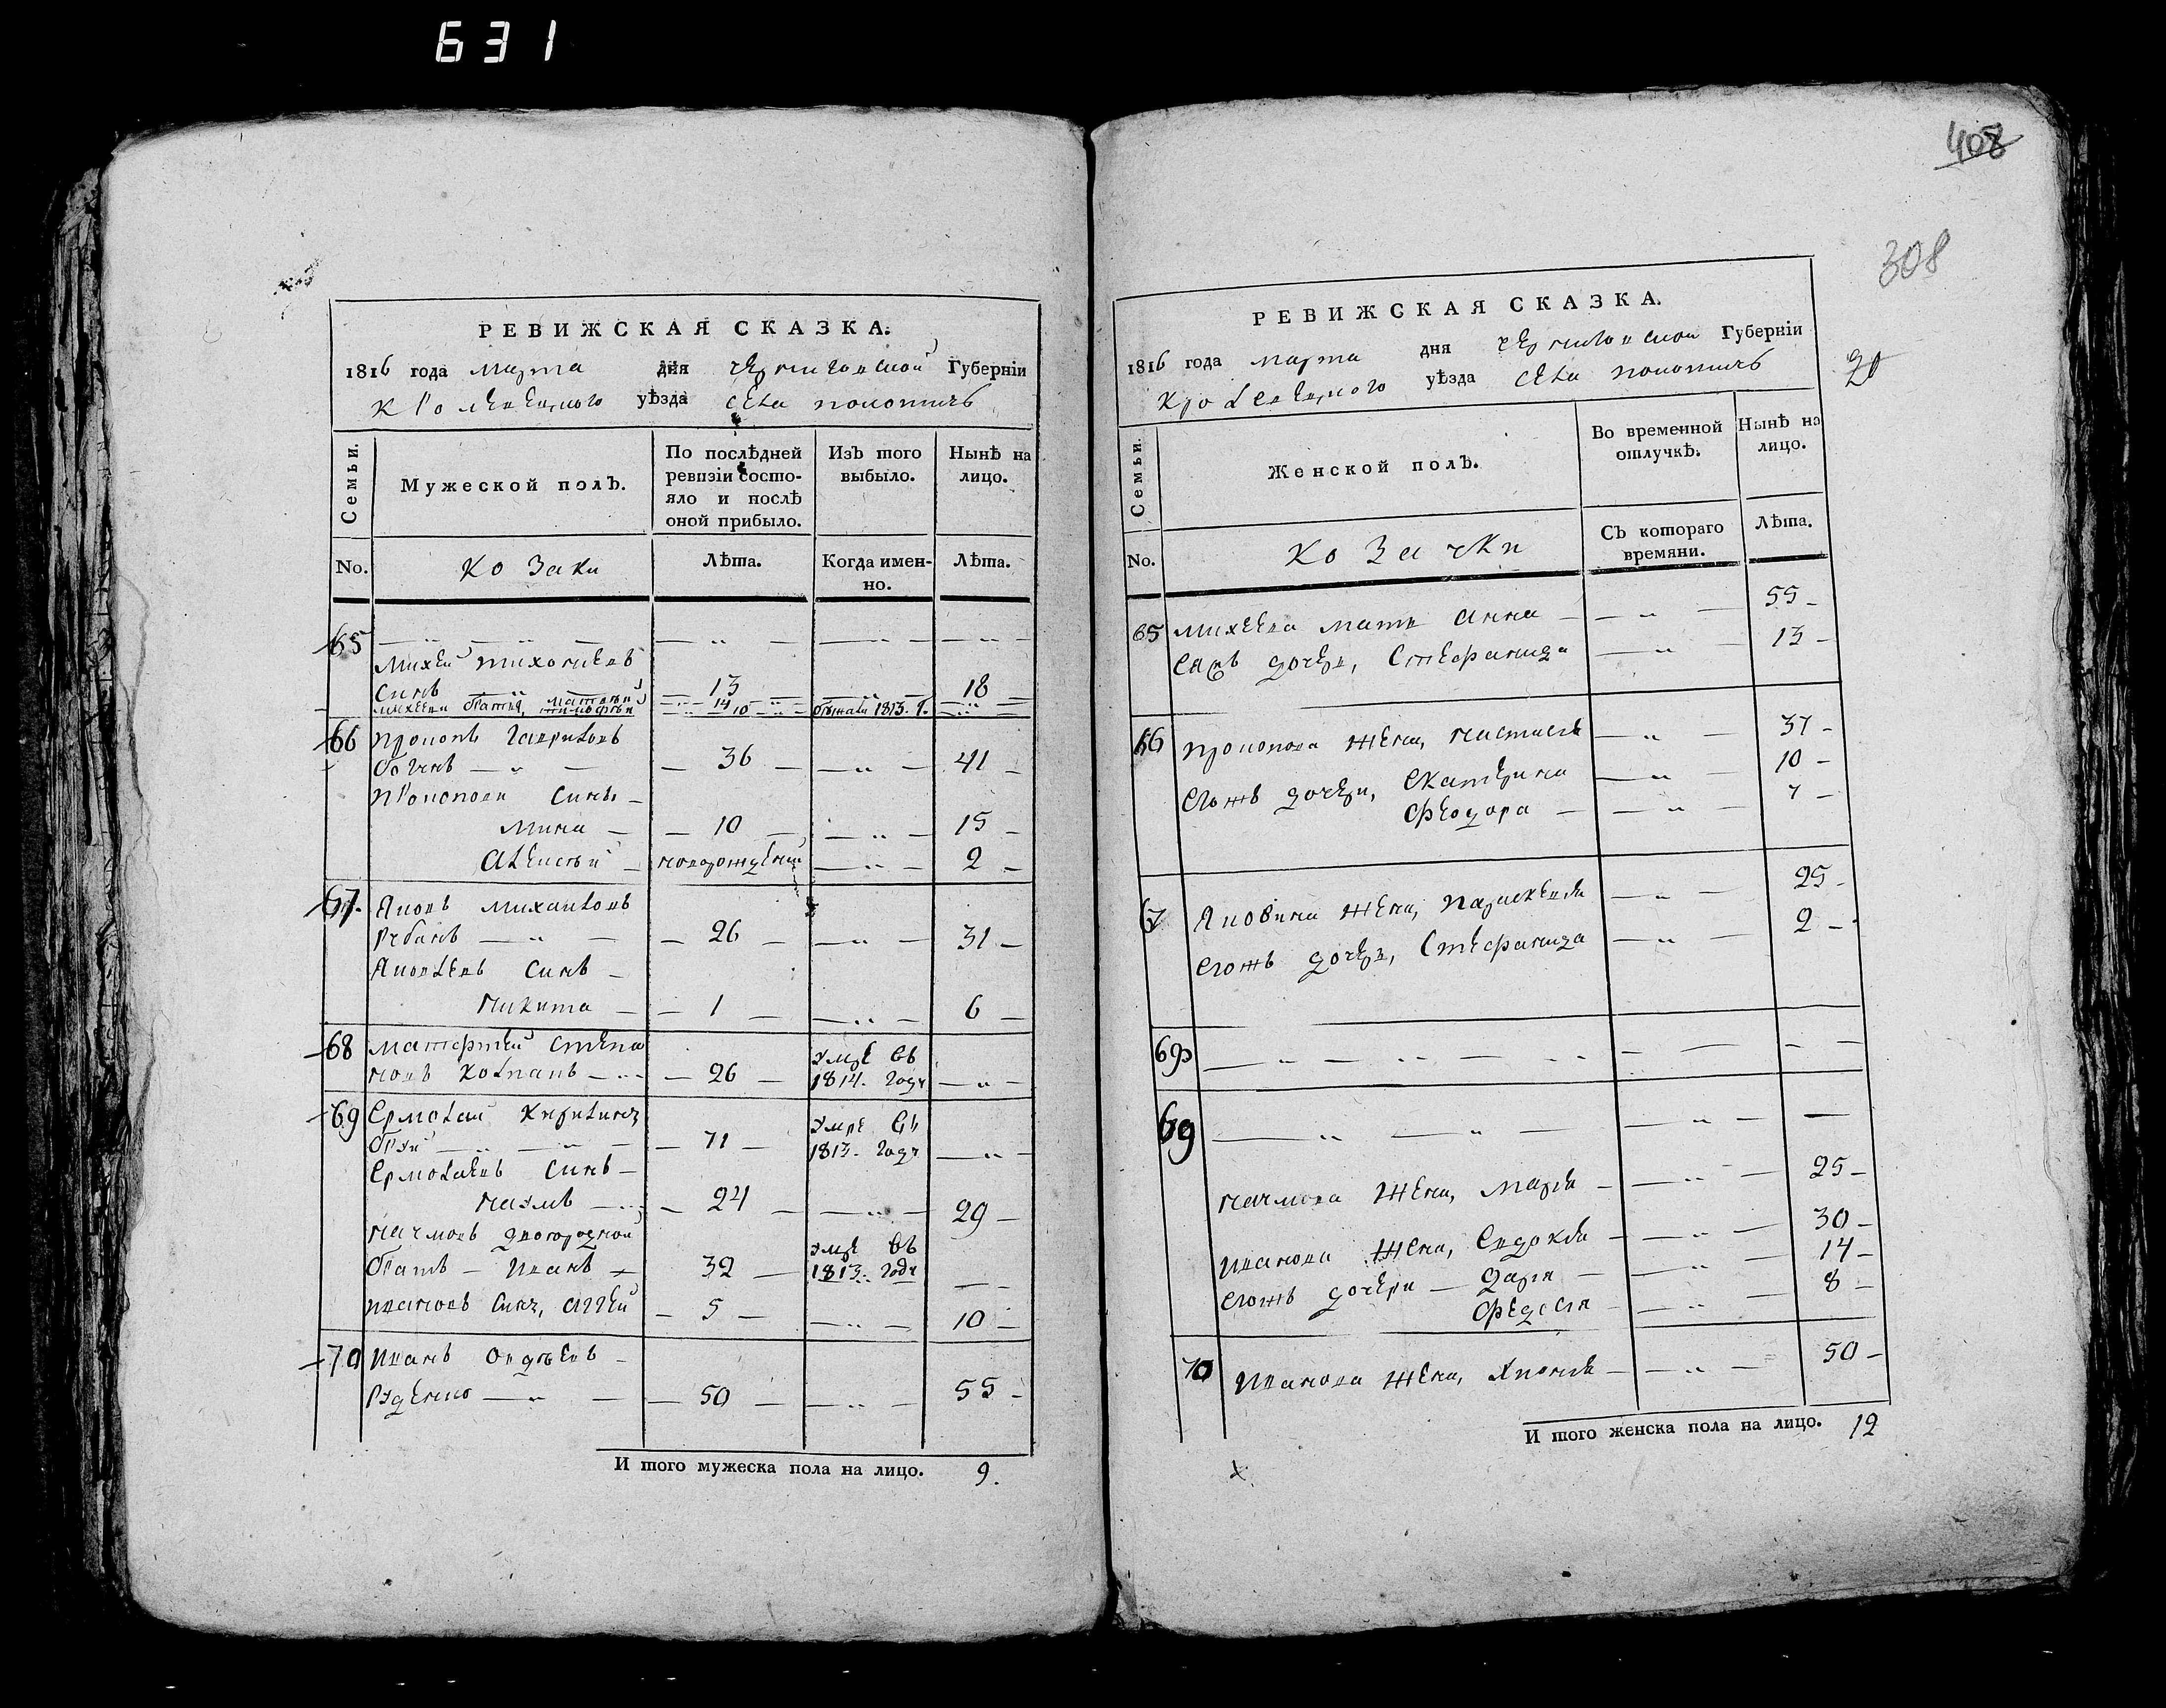 631
РЕВИЖСКАЯ СКАЗКА.
1816 года марта дня черниговской Губерніи
кролевецкого уѣзда села
Семьи.
Мужеской полъ.
По послѣдней ревизіи состояло и послѣ оной прибыло.
Изъ того выбыло.
Нынѣ на лицо.
No.
козаки
Лѣта.
Когда именно.
Лѣта.
65
михей тихонѣевъ
синъ 13 18
михееви братья, матвѣй 14
тимофѣй 10 бѣжали 1813. г.
66 прокопъ гавриловъ
36 41
прокопови сини
мина 10 15
алексѣй новорожденій 2
67. яковъ михайловъ
26 31
яковлевъ синъ
никита 1 6
68 матфѣй степа
новъ колпакъ 26 умре въ 1814. году
69 ермолай кирилинъ
71 умре въ 1813. году
ермолаевъ синъ
наумъ 24 29
наумовъ двоюродной
братъ иванъ 32 умре въ 1813. году
ивановъ синъ, аггей 5 10
70 иванъ авдѣевъ
руденко 50 55
И того мужеска пола на лицо. 9.
408
308
20
РЕВИЖСКАЯ СКАЗКА.
1816 года марта дня черниговской Губерніи
кролевецкого уѣзда села
Семьи.
Женской полъ.
Во временной отлучкѣ.
Нынѣ на лицо.
No.
козачки
Съ котораго времяни.
Лѣта.
65 михеева мать анна 55
еяжъ дочерь, стефанида 13
66 прокопова жена, настасія 37
егожъ дочери, екатерина 10
феодора 7
67 яковина жена, параскевія 25
егожъ дочерь, стефанида 2
69
наумова жена, марія 25
иванова жена, евдокія 30
егожъ дочери дарія 14
федосія 8
70 иванова жена, 50
И того женска пола на лицо. 12